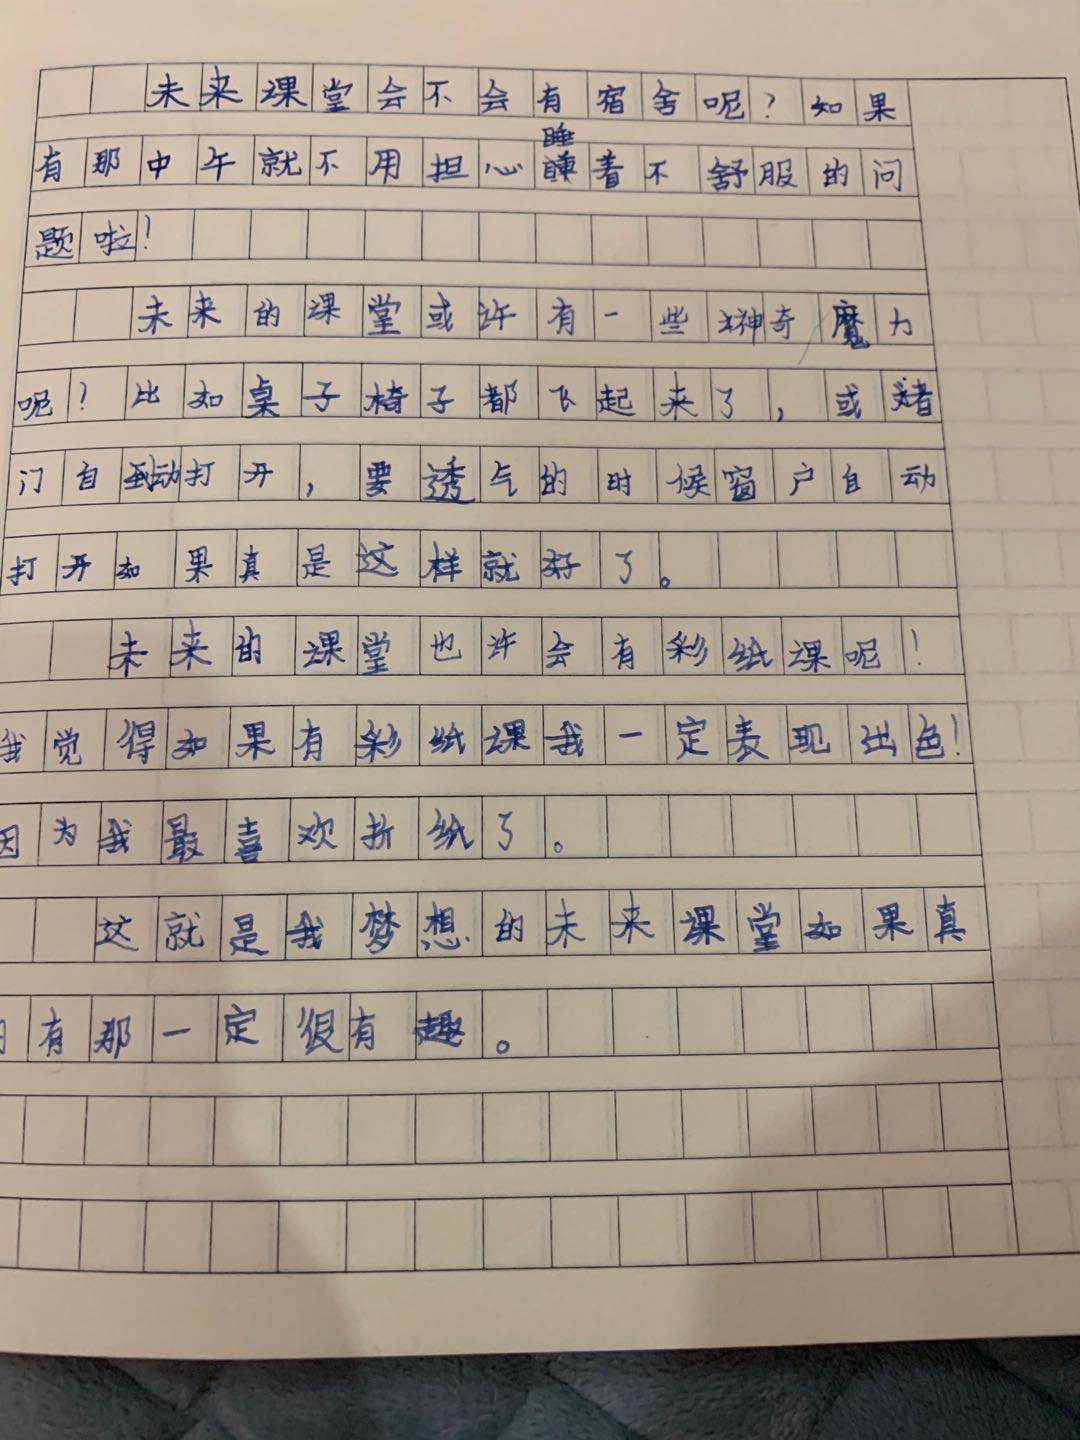 未来课堂会不会有宿舍呢？如果
有那中午就不用担心睡着不舒服的问
题啦！
未来的课堂或许有一些神奇魔力
呢？比如桌子椅子都飞起来了，或者
门自动打开，要透气的时候窗户自动
打开如果真是这样就好了。
未来的课堂也许会有彩纸课呢！
我觉得如果有彩纸课我一定表现出色！
因为我最喜欢折纸了。
这就是我梦想的未来课堂如果真
有那一定很有趣。